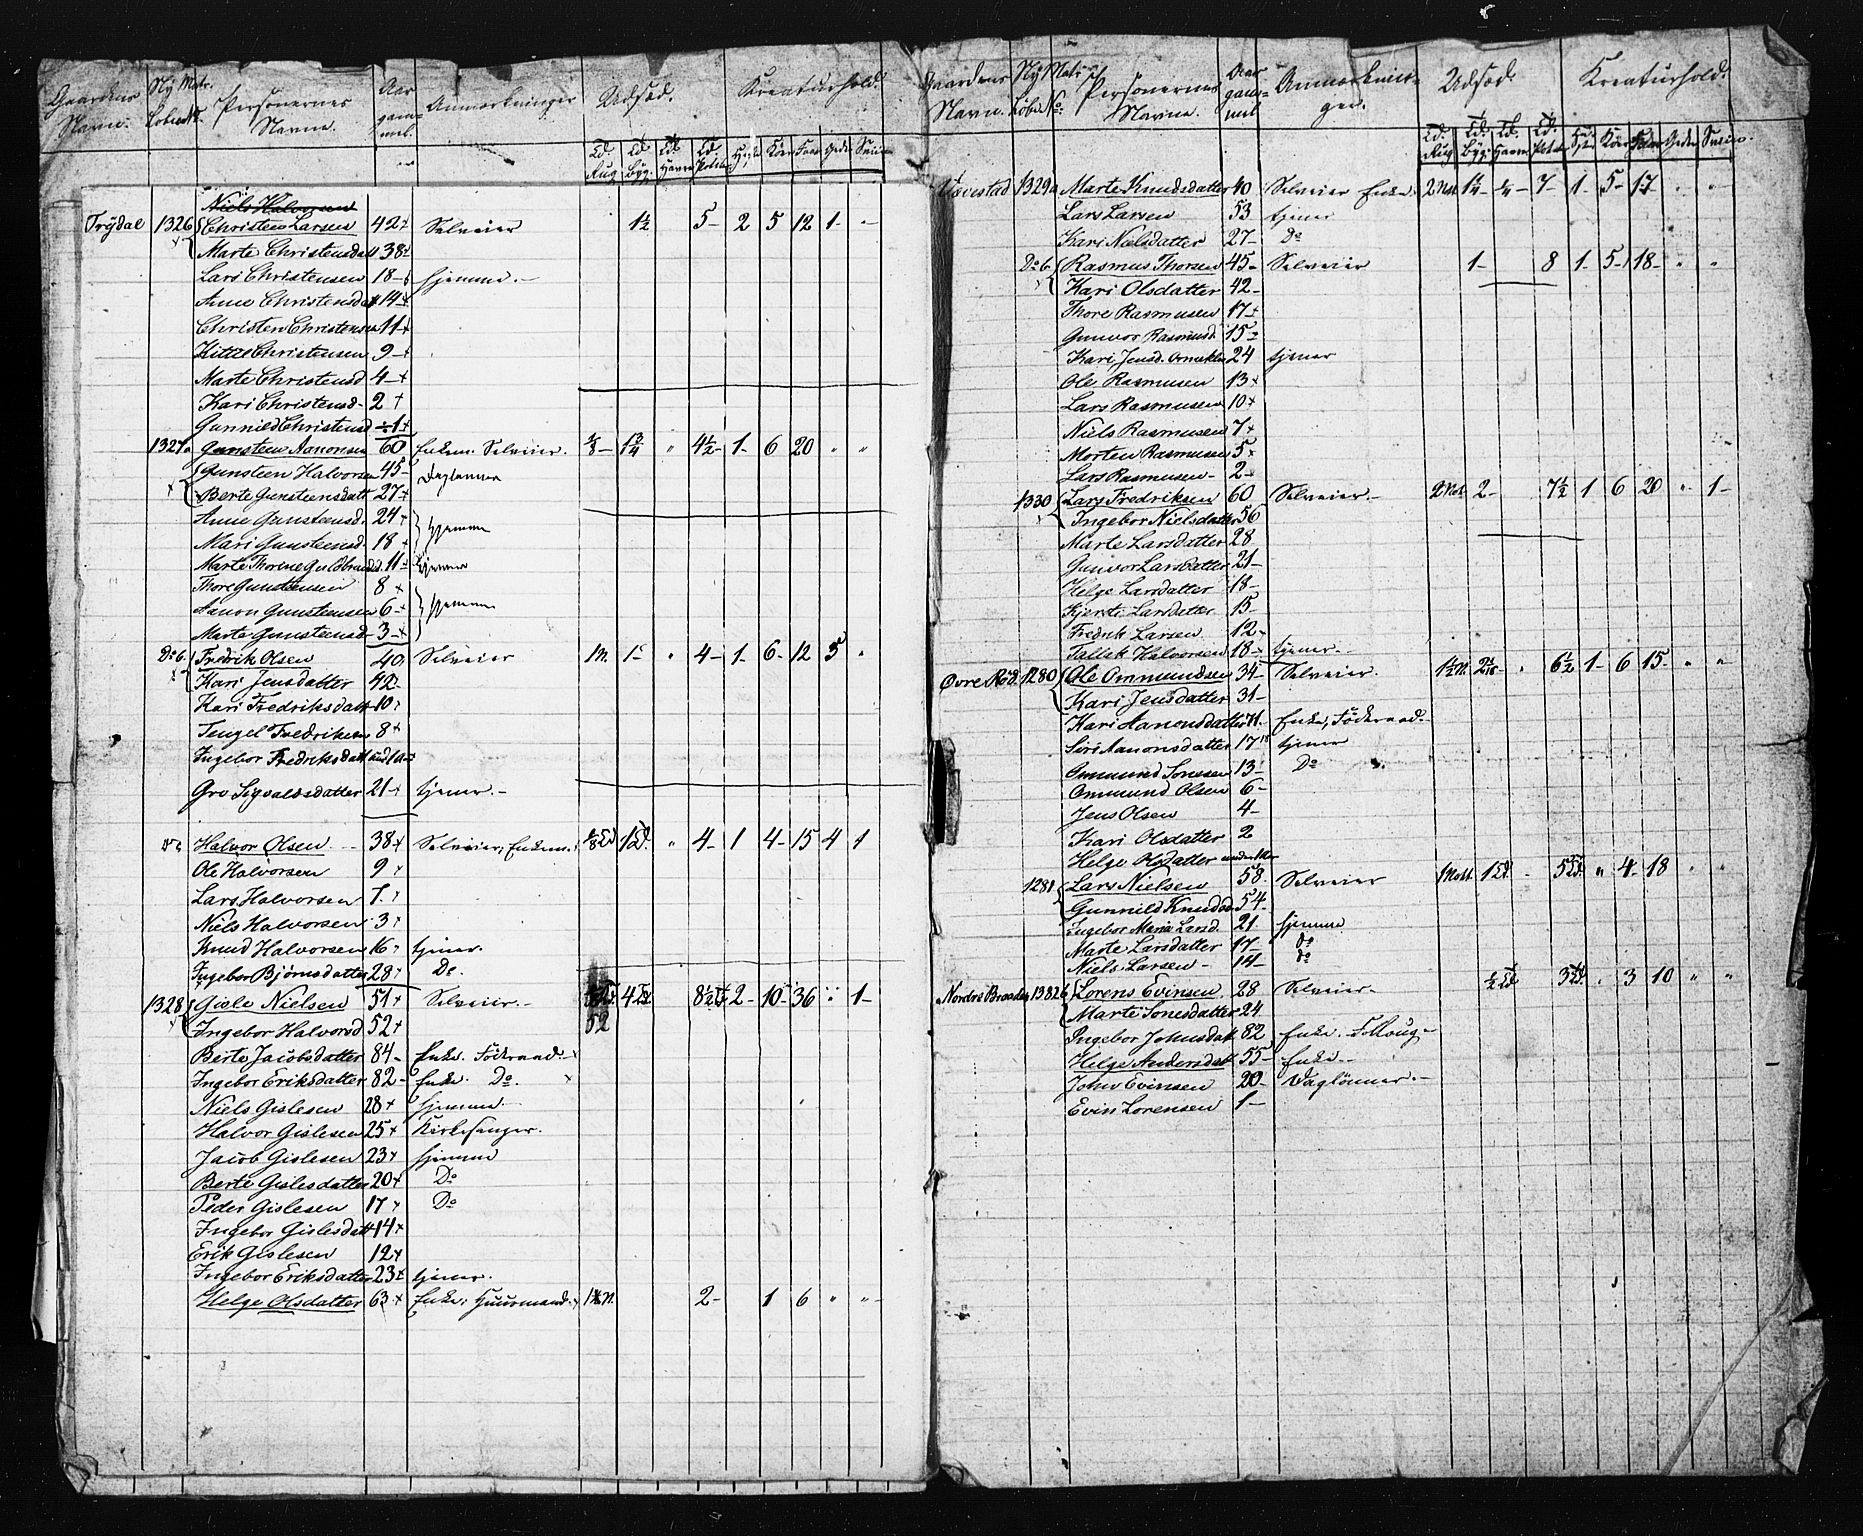 Gaardens Navn. Ny Matr. Løbe No. Personernes Navne. Aar gammel. Anmærkninger Udsæd. Kreaturhold.
Td. Rug Td. Byg. Td. Havre Td. Potet. Heste Køer Faar Geder Sviin
Niels Halvorsen
Trydal 1326 Christen Larsen 42 Selveier 1½ 5 2 5 12 1 „
Marte Christensdatt 38
Lars Christensen 18 hjemme.
Anne Christensdatt 14
Christen Christensen 11
Kittel Christensen 9
Marte Christensd 4
Kari Christensd. 2
Gunnild Christensd 1
1327a Gunsteen Aanonsen 60 Enkem. Selveier. 1¾ „ 4½ 1 6 20 „ „
Gunsteen Halvorsen 45 Daglønner
Berte Gunsteensdatt 27
Anne Gunsteensd. 24 hjemme
Mari Gunsteensd. 18
Marte Thorine Guldbrandsd. 11 tjener
Thore Gunsteensen 8
Aanon Gunsteensen 6 hjemme
Marte Gunsteensd 3
Do 6. Fredrik Olsen 40 Selveier 1 M. 1 „ 4 1 6 12 3 „
Kari Jensdatter 42
Kari Fredriksdatt 10
Tengel Fredriksen 8
Ingebor Fredriksdatt und 1 Aar
Gro Sigvaldsdatter 21 tjener.
Do c Halvor Olsen 38 Selveier; Enkem. 1 Td. „ 4 1 4 15 4 1
Ole Halvorsen 9
Lars Halvorsen 7
Niels Halvorsen 3
Knud Halvorsen 16 tjener.
Ingebor Bjørnsdatter 28 Do.
1328 Gisle Nielsen 51 Selveier. 4 Td 8½ Td 2 10 36 „ 1
Ingebor Halvorsd 52 52
Berte Jacobsdatter 84 Enke. Föderaad.
Ingebor Eriksdatter 82 Enke. Do.
Niels Gislesen 28 hjemme
Halvor Gislesen 25 Kirkesanger.
Jacob Gislesen 23 hjemme
Berte Gislesdatter 20 Do
Peder Gislesen 17 Do
Ingebor Gislesdatt 14
Erik Gislesen 12
Ingebor Eriksdatter 23 tjener.
Helge Olsdatter 63 Enke; Huusmand. 2 1 6 „ „
Gaardens Navn. Ny Matr Løbe No. Personernes Navne. Aar gammel Anmærkninger. Udsæd. Kreaturhold.
Td. Rug Td. Byg. Td. Havre Td. Potet. Heste Køer Faar Geder Sviin.
Vævestad 1329a Marte Knudsdatter 40 Selveier Enke. 1¼ ¼ 7 1 5 17 „ „
Lars Larsen 53 tjener
Kari Nielsdatter 27 Do
Do 6. Rasmus Thorsen 45 Selveier 1 8 1 5 18 „ „
Kari Olsdatter 42
Thore Rasmusen 17
Gunvor Rasmusd. 15
Kari Jensd. 24 tjener
Ole Rasmusen 13
Lars Rasmusen 10
Niels Rasmusen 7
Morten Rasmusen 5
Lars Rasmusen 2
1330 Lars Fredriksen 60 Selveier. 2 7½ 1 6 20 „ 1
Ingebor Nielsdatter 56
Marte Larsdatter 28
Gunvor Larsdatter 21
Helge Larsdatter 18
Kjersti Larsdatter 15
Fredrik Larsen 12
Tallak Halvorsen 18 tjener.
Øvre Röd. 1280 Ole Ommundsen 34 Selveier. 1½ M. „ 6½ 1 6 15 „ „
Kari Jensdatter 31
Kari Aanonsdatter 71 Enke, Föderaad.
Siri Aanonsdatter 17 tjener
Ommund Tonesen 13 Do
Ommund Olsen 6
Jens Olsen 4
Kari Olsdatter 2
Helge Olsdatter under 1 Aar
1281 Lars Nielsen 58 Selveier 1 Td. „ 4 18 „ „
Gunnild Knudsd. 54
Ingebor Maria Larsd. 21 hjemme
Marte Larsdatter 17 Do
Niels Larsen 14 Do
Nordre Braadland 1382 Lorens Evinsen 28 Selveier ½ Td 3 Td. „ 3 10 „ „
Marte Tonesdatter 24
Ingebor Johnsdatt. 82 Enke.
Helge Andersdatt 55 Enke
John Evinsen 20 Daglönner.
Evin Lorensen 1